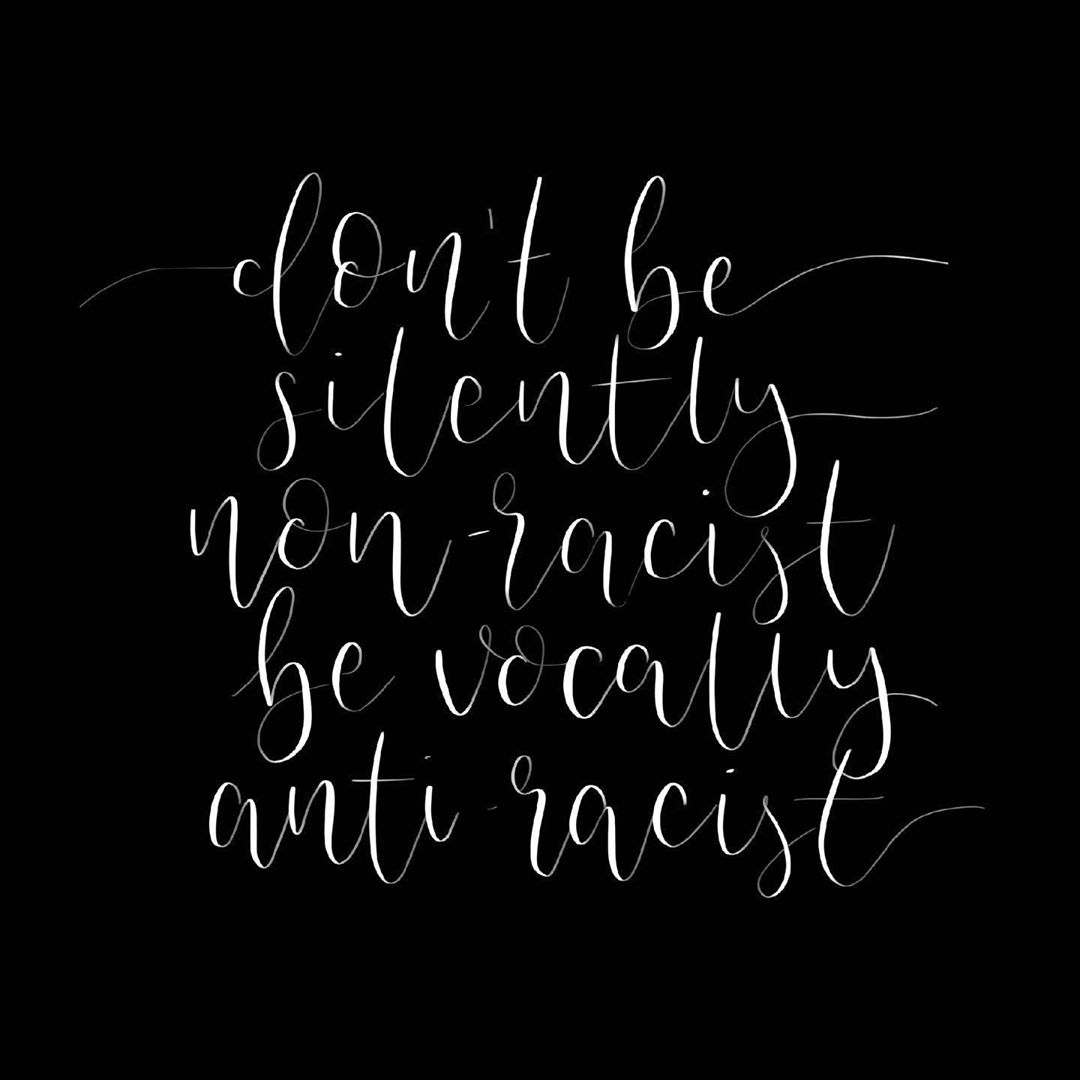 don't be
silently
non-racist
be vocally
anti-racist